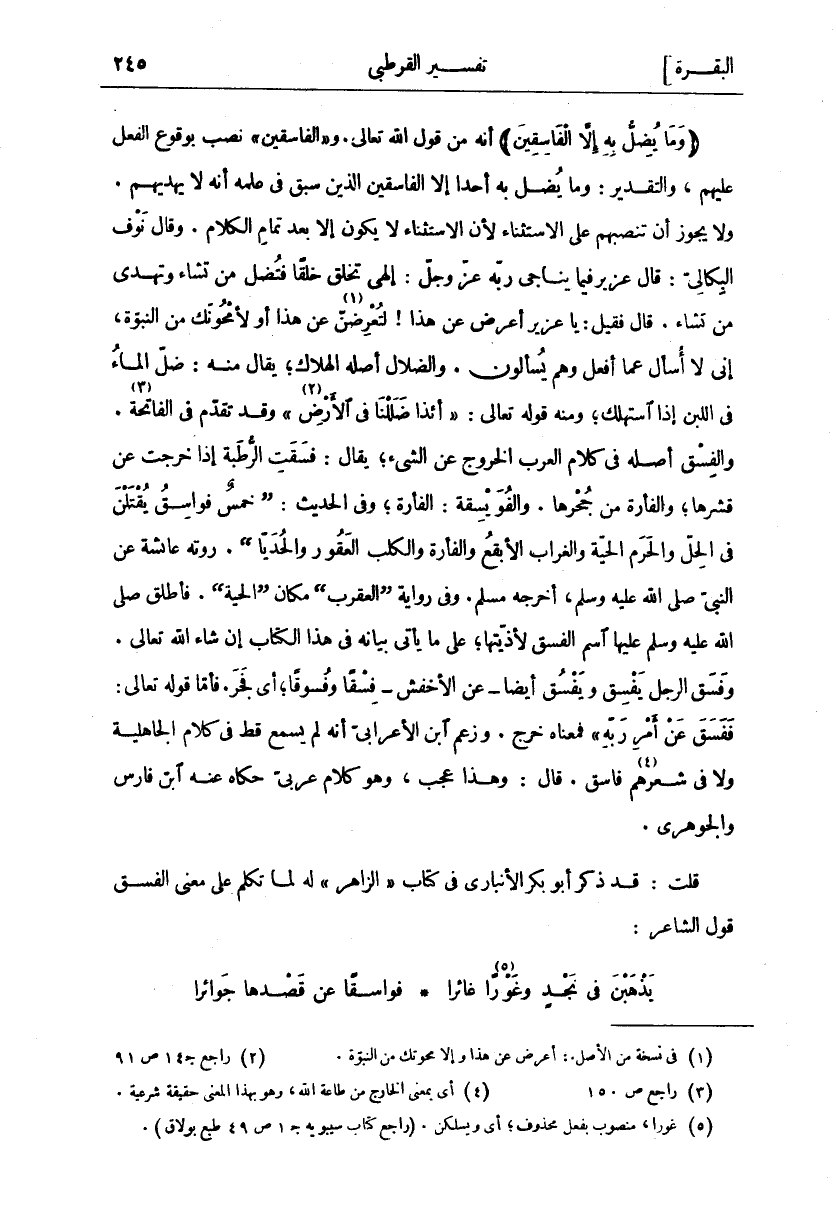 البقـــرة ]
تفســـير القرطبي
٢٤٥
﴿وَمَا يُضِلُّ بِهِ إِلَّا الْفَاسِقِينَ﴾ أنه من قول الله تعالى. و«الفاسقين» نصب بوقوع الفعل
عليهم ، والتقـدير : وما يُضـل به أحدا إلا الفاسقين الذين سبق فى علمه أنه لا يهديهـم .
ولا يجوز أن تنصبهم على الاستثناء لأن الاستثناء لا يكون إلا بعد تمام الكلام . وقال نَوْف
البِكالىّ : قال عزير فيما يناجى ربّه عزّ وجلّ : إلهى تخلق خلقًا فتُضل من تشاء وتهـدى
من تشاء . قال فقيل: يا عزير أعرض عن هذا ! لتُعْرِضنّ (١) عن هذا أو لأمْحُوَنّك من النبوّة،
إنى لا أُسأل عما أفعل وهم يُسألون . والضلال أصله الهلاك؛ يقال منـه : ضلّ المـاءُ
فى اللبن إذا آستهلك؛ ومنه قوله تعالى : « أئذا ضَلَلْنَا فى ٱلْأَرْضِ (٢) » وقـد تقدّم فى الفاتحة (٣) .
والفِسْق أصـله فى كلام العرب الخروج عن الشىء؛ يقال : فسَقَتِ الرُّطَبة إذا خرجت عن
قشرها؛ والفأرة من جُحْرها . والفُوَيْسِقة : الفأرة ؛ وفى الحديث : ”خمسٌ فواسِقُ يُقْتَلْنَ
فى الحِلّ والحَرَم الحيّة والغراب الأبقعُ والفأرة والكلب العَقُور والحُدَيّا“ . روته عائشة عن
النبىّ صلى الله عليه وسلم، أخرجه مسلم. وفى رواية ”العقرب“ مكان ”الحية“ . فأطلق صلى
الله عليه وسلم عليها آسم الفسق لأذيّتها؛ على ما يأتى بيانه فى هذا الكتاب إن شاء الله تعالى .
وفَسَق الرجل يَفْسِق ويَفْسُق أيضا ــ عن الأخفش ــ فِسْقًا وفُسوقًا؛ أى فَجَر. فأمّا قوله تعالى:
فَفَسَقَ عَنْ أَمْرِ رَبِّهِ» فمعناه خرج . وزعم آبن الأعرابىّ أنه لم يسمع قط فى كلام الجاهليـة
ولا فى شـعرهم (٤) فاسق . قال : وهـذا عجب ، وهو كلام عربىّ حكاه عنـه آبن فارس
والجوهرى .
قلت : قـد ذكر أبو بكر الأنبارى فى كتاب « الزاهر » له لمـا تكلم على معنى الفسـق
قول الشاعر :
يَذْهَبْنَ فى نَجْـدٍ وغَوْرًا (٥) غائرا * فواسـقًا عن قَصْـدها جَوائرا
(١) فى نسخة من الأصل.: أعرض عن هذا وإلا محوتك من النبوّة . (٢) راجع جـ ١٤ ص ٩١
(٣) راجع ص ١٥٠ (٤) أى بمعنى الخارج من طاعة الله، وهو بهذا المعنى حقيقة شرعية .
(٥) غورا، منصوب بفعل محذوف؛ أى ويسلكن . (راجع كتاب سيبويه جـ ١ ص ٤٩ طبع بولاق) .